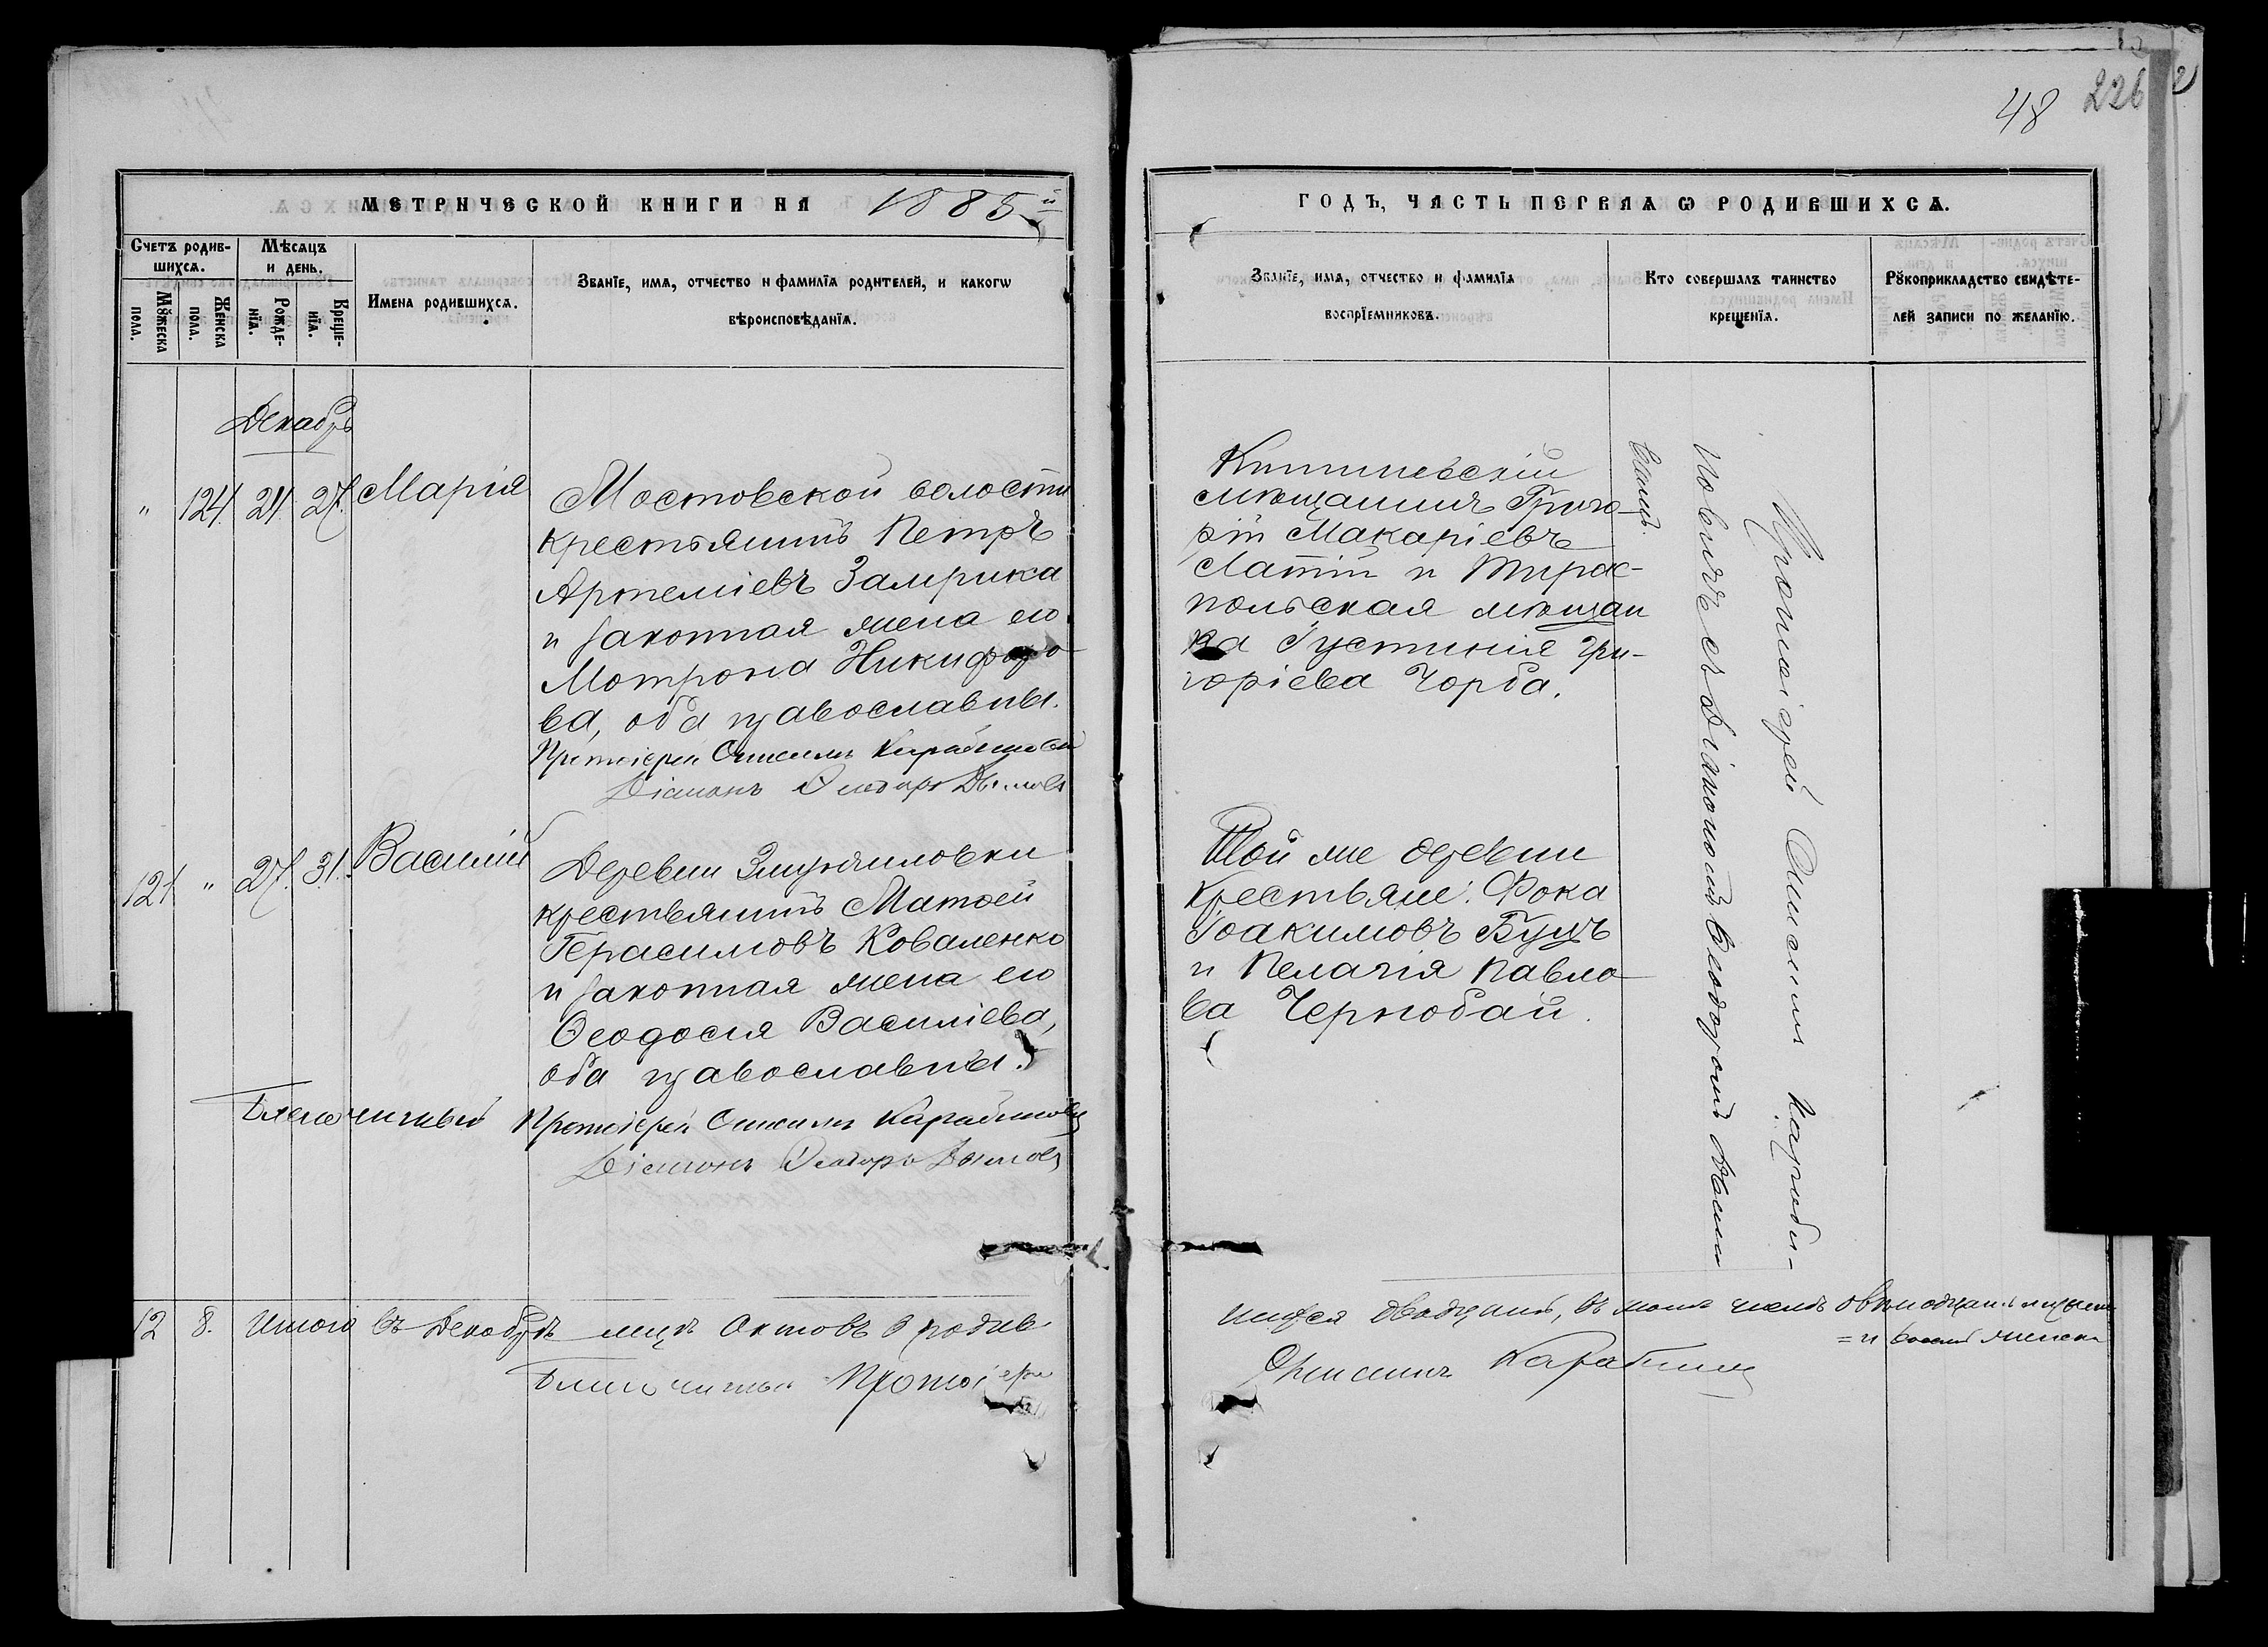 48 226
МЕТРИЧЕСКОЙ КНИГИ НА 1885й
ГОДЪ, ЧАСТЬ ПЕРВАѦ Ѡ РОДИВШИХСѦ.
Счетъ родив-
шихсѧ.
Мѣсѧцъ
и день.
Мꙋжеска
пола.
Женска
пола.
Рожде-
нїѧ.
Креще-
нїѧ.
Имена родившихсѧ.
Званїе, имѧ, отчество и фамилїѧ родителей, и какогѡ
вѣроисповѣданїѧ.
Званїе, имѧ, отчество и фамилїѧ
воспрїемниковъ.
Кто совершалъ таинство
крещенїѧ.
Рꙋкоприкладство свидѣте-
лей записи по желанїю.
Декабрь
" 124. 21. 27. Марія
Мостовской волости
крестьянинъ Петръ
Артеміевъ Замрика
и законная жена его
Мотрона Никифоро-
ва, оба православны.
Протоіерей Онисимъ
Діаконъ Ѳеодоръ
Кишиневскій
мѣщанинъ Григо-
рій Макаріевъ
Латій и Тирас-
польская мѣщан
ка Іустинія Гри-
горіева Чорба.
Протоіерей Онисимъ Караби-
новичъ съ Діакономъ Ѳеодоромъ
121. " 27. 31. Василій
Деревни
крестьянинъ Матѳей
Герасимовъ Коваленко
и законная жена его
Ѳеодосія Василіева,
оба православны.
Благочинный Протоіерей Онисимъ Карабиновичъ
Діаконъ Ѳеодоръ
Той же деревни
крестьяне: Фока
Іоакимовъ Буцъ
и Пелагія Павло-
ва Чернобай.
12 8. Итого въ Декабрѣ мцѣ актовъ о родив
шихся двадцать, въ томъ числѣ двенадцать мужеск
= и восемь женска
Благочинный Протоіерей
Онисимъ